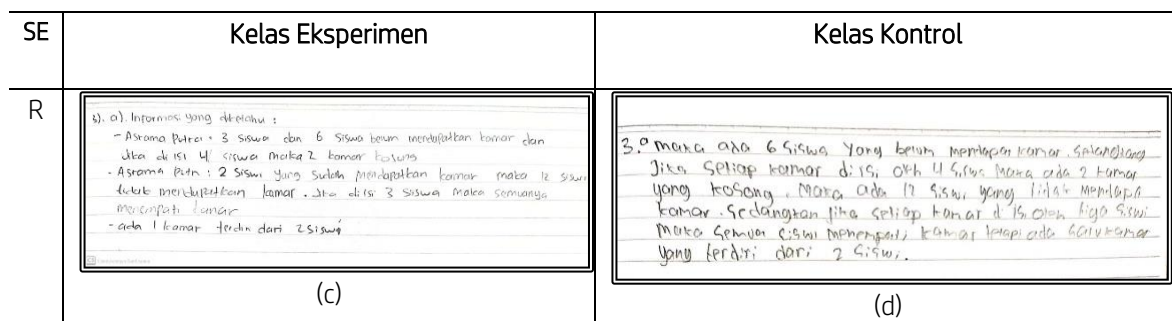 SE Kelas Eksperimen Kelas Kontrol
R
3). a). Informasi yang diketahui :
- Asrama Putra : 3 siswa dan 6 siswa belum mendapatkan kamar dan
Jika di isi 4 siswa maka 2 kamar kosong
- Asrama Putri : 2 Siswi yang sudah mendapatkan kamar maka 12 siswi
tidak mendapatkan kamar. Jika di isi 3 siswa maka semuanya
menempati kamar
- ada 1 kamar terdiri dari 2 siswi
(c)
3.a maka ada 6 Siswa yang belum mendapat kamar. Sedangkang
Jika Setiap kamar di isi oleh 4 siswa Maka ada 2 kamar
yang kosong. Maka ada 12 siswi yang tidak mendapat
kamar. Sedangkan jika setiap kamar di isi oleh tiga siswi
maka semua siswi menempati kamar tetapi ada satu kamar
yang terdiri dari 2 siswi.
(d)